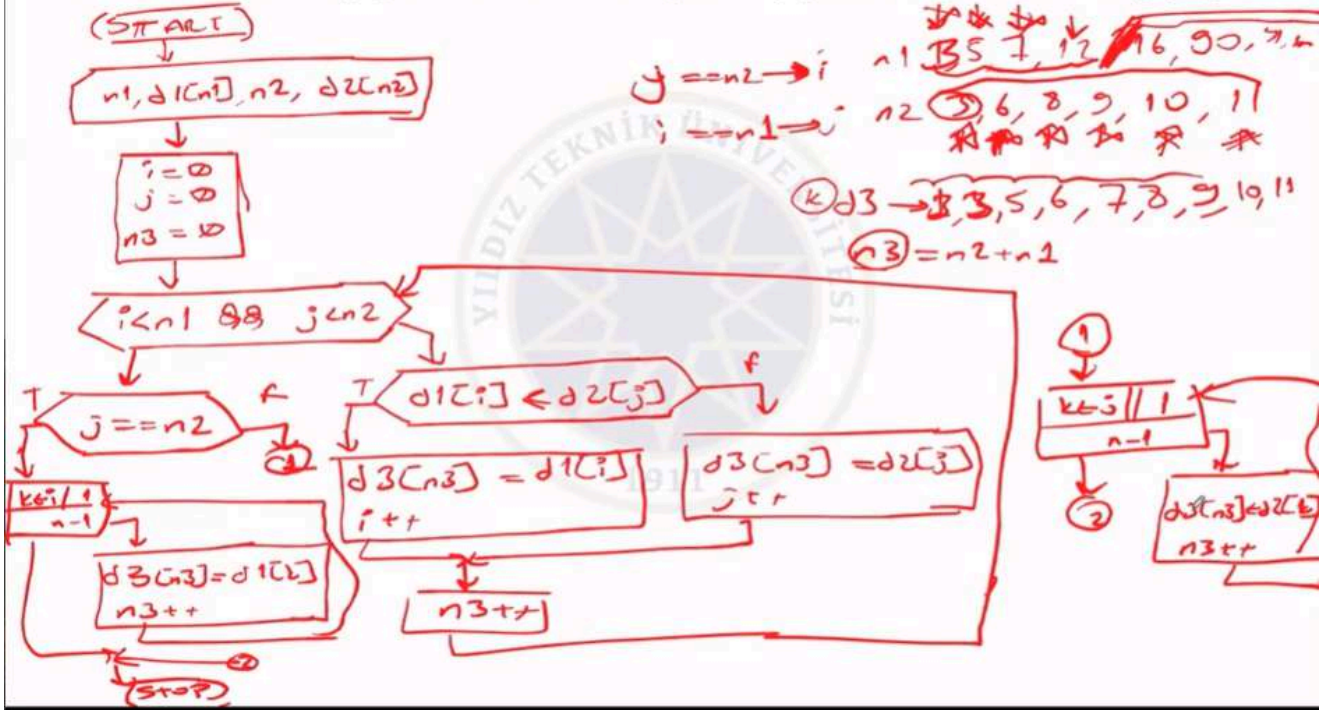 (START)
n1, d1[n1], n2, d2[n2]
i=0
j=0
n3=0
i<n1 && j<n2
T
j==n2
F
1
k←i / 1
n-1
n3++
2
(STOP)
T
d1[i] < d2[j]
F
d3[n3] = d1[i]
i++
d3[n3] = d2[j]
j++
n3++
j ==n2 → i
i ==n1 → j
n1 3 5 7, 12 16, 90,
n2 3, 6, 8, 9, 10, 11
k d3 → 3, 3, 5, 6, 7, 8, 9, 10, 11
n3 = n2+n1
1
k←j // 1
n-1
2
d3[n3]←d2[k]
n3++
YILDIZ TEKNİK ÜNİVERSİTESİ
1911